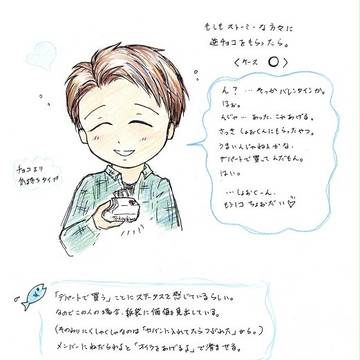 もしもストーミーな方々に
逆チョコをもらったら。
〈ケース ○〉
ん？ …そっかバレンタインか。
はぉ。
んじゃ…あった、これあげる。
さっき しょおくんにもらったやつ。
うまいんじゃねぇかな、
デパートで買ってんだもん。
はい。
…しょおくーん、
もう1コ ちょおだい♡
チョコより
気持ちタイプ
「デパートで買う」ことにステータスを感じているらしい。
なのでこの人の場合、
(そのわりにくしゃくしゃなのは「カバンに入れてたらつぶれた」から。)
メンバーにねだられると「スイカをあげるよ」で済ませる。